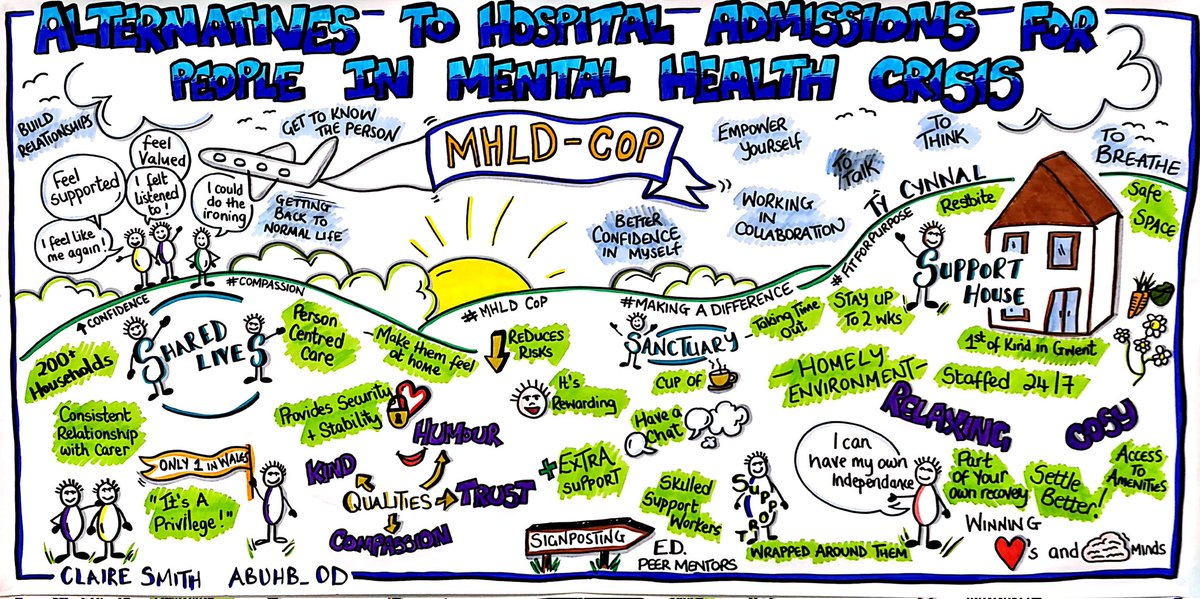 ALTERNATIVES TO HOSPITAL ADMISSIONS FOR
PEOPLE IN MENTAL HEALTH CRISIS
BUILD
RELATIONSHIPS
GET TO KNOW
THE PERSON
MHLD-COP
EMPOWER
YOURSELF
TO
TALK
TO
THINK
TO
BREATHE
feel
Valued
Feel
supported
I felt
listened
to!
I could
do the
ironing
I feel like
me again!
GETTING
BACK TO
NORMAL LIFE
BETTER
CONFIDENCE
IN MYSELF
WORKING
IN
COLLABORATION
TŶ CYNNAL
#FIT FOR PURPOSE
Restbite
Safe
SPACE
SUPPORT
HOUSE
CONFIDENCE
#COMPASSION
#MHLD COP
#MAKING A DIFFERENCE
SHARED
LIVES
200+
Households
Person
Centred
Care
Make them feel
at home
Consistent
Relationship
with Carer
Provides Security
+ Stability
ONLY 1 IN WALES
"It's A
Privilege!"
REDUCES
RISKS
It's
Rewarding
HUMOUR
KIND
QUALITIES
TRUST
COMPASSION
SANCTUARY
Taking Time
Out
STAY UP
TO 2 WKS
CUP OF
Have a
Chat
+ EXTRA
SUPPORT
Skilled
Support
Workers
SIGNPOSTING
E.D.
PEER MENTORS
SUPPORT
WRAPPED AROUND THEM
1st of Kind in Gwent
-HOMELY
ENVIRONMENT-
Staffed 24/7
RELAXING
COSY
I can
have my own
Independance
Part
of Your
own recovery
Settle
Better!
ACCESS
TO
AMENITIES
WINNING
's and MINDS
CLAIRE SMITH ABUHB_OD